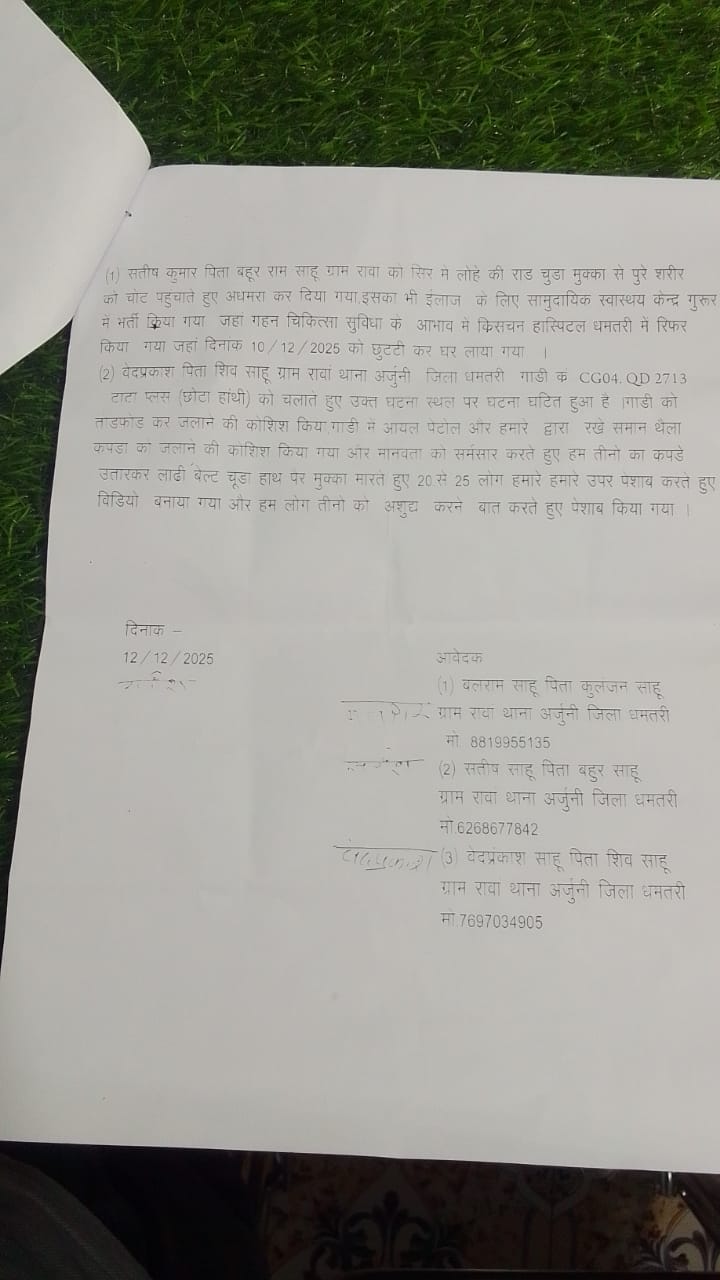 (1) सतीष कुमार पिता बहूर राम साहू ग्राम रावा को सिर मे लोहे की राड चुडा मुक्का से पुरे शरीर
को चोट पहुंचाते हुए अधमरा कर दिया गया.इसका भी ईलाज के लिए सामुदायिक स्वास्थय केन्द्र गुरूर
में भर्ती किया गया जहां गहन चिकित्सा सुविधा के आभाव में किसचन हास्पिटल धमतरी में रिफर
किया गया जहां दिनांक 10/12/2025 को छुटटी कर घर लाया गया ।
(2) वेदप्रकाश पिता शिव साहू ग्राम रावां थाना अर्जुनी जिला धमतरी गाडी कं CG04. QD 2713
टाटा प्लस (छोटा हांथी) को चलाते हुए उक्त घटना स्थल पर घटना घटित हुआ है ।गाडी को
ताडफोड कर जलाने की कोशिश किया.गाडी में आयल पेटोल और हमारे द्वारा रखे समान थैला
कपडा को जलाने की कोशिश किया गया और मानवता को सर्मसार करते हुए हम तीनो का कपडे
उतारकर लाढी बेल्ट चूडा हाथ पैर मुक्का मारते हुए 20 से 25 लोग हमारे हमारे उपर पेशाब करते हुए
विडियो बनाया गया और हम लोग तीनो को अशुद्य करने बात करते हुए पेशाब किया गया ।
दिनाक –
12/12/2025
आवेदक
(1) बलराम साहू पिता कुलंजन साहू
ग्राम रावा थाना अर्जुनी जिला धमतरी
मो. 8819955135
(2) सतीष साहू पिता बहुर साहू
ग्राम रावा थाना अर्जुनी जिला धमतरी
मो.6268677842
(3) वेदप्रंकाश साहू पिता शिव साहू
ग्राम रावा थाना अर्जुनी जिला धमतरी
मो.7697034905